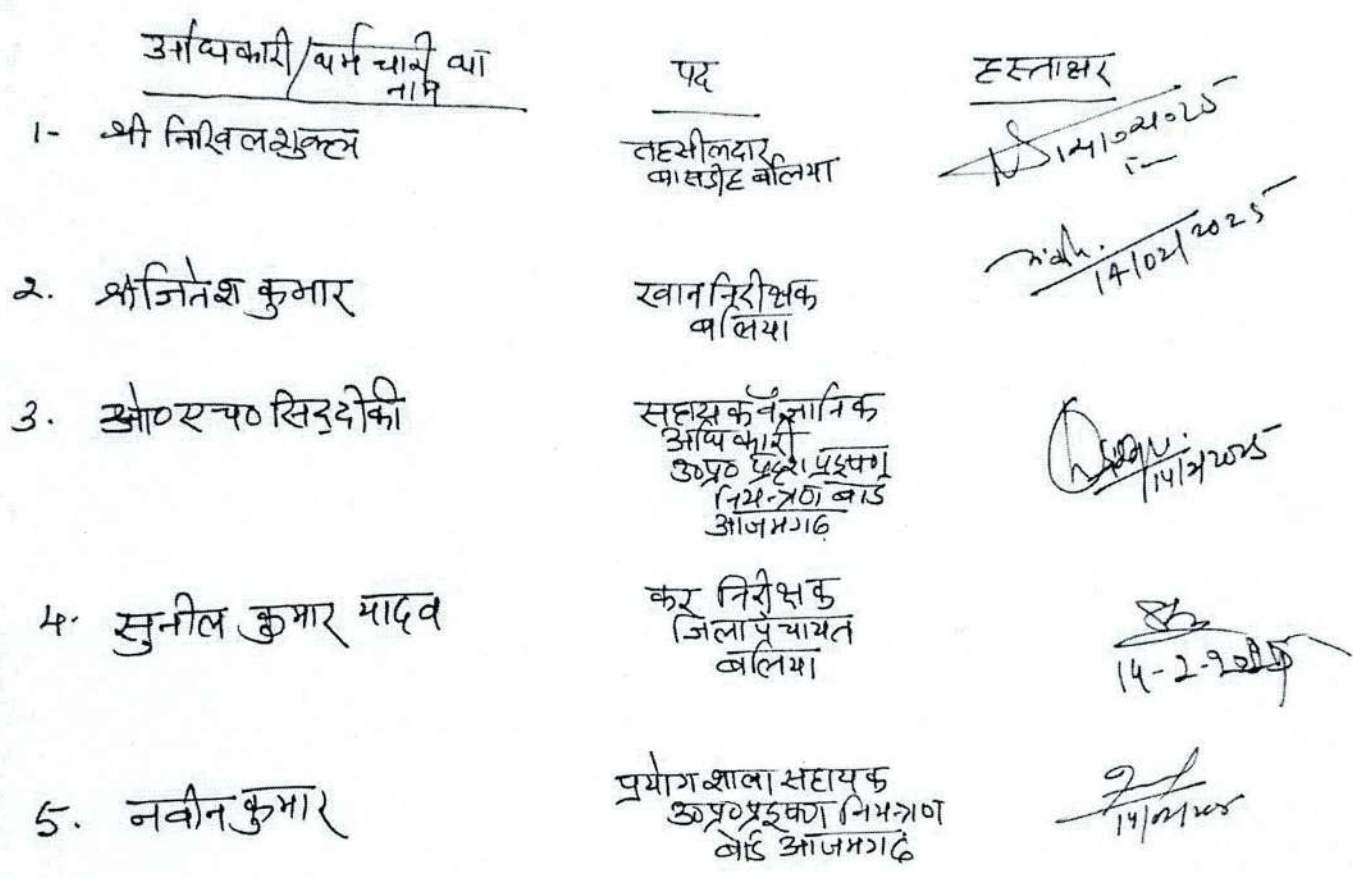 अधिकारी/कर्मचारी का नाम पद हस्ताक्षर
1- श्री निखिल शुक्ल तहसीलदार
बासडीह बलिया
14/02/2025
2. श्री जितेश कुमार खान निरीक्षक
बलिया
14/02/2025
3. ओ०एच० सिद्दीकी सहायक वैज्ञानिक
अधिकारी
उ०प्र० प्रदूषण
नियन्त्रण बोर्ड
आजमगढ़
14/2/2025
4. सुनील कुमार यादव कर निरीक्षक
जिला पंचायत
बलिया
14-2-2025
5. नवीन कुमार प्रयोगशाला सहायक
उ०प्र०प्रदूषण नियन्त्रण
बोर्ड आजमगढ़